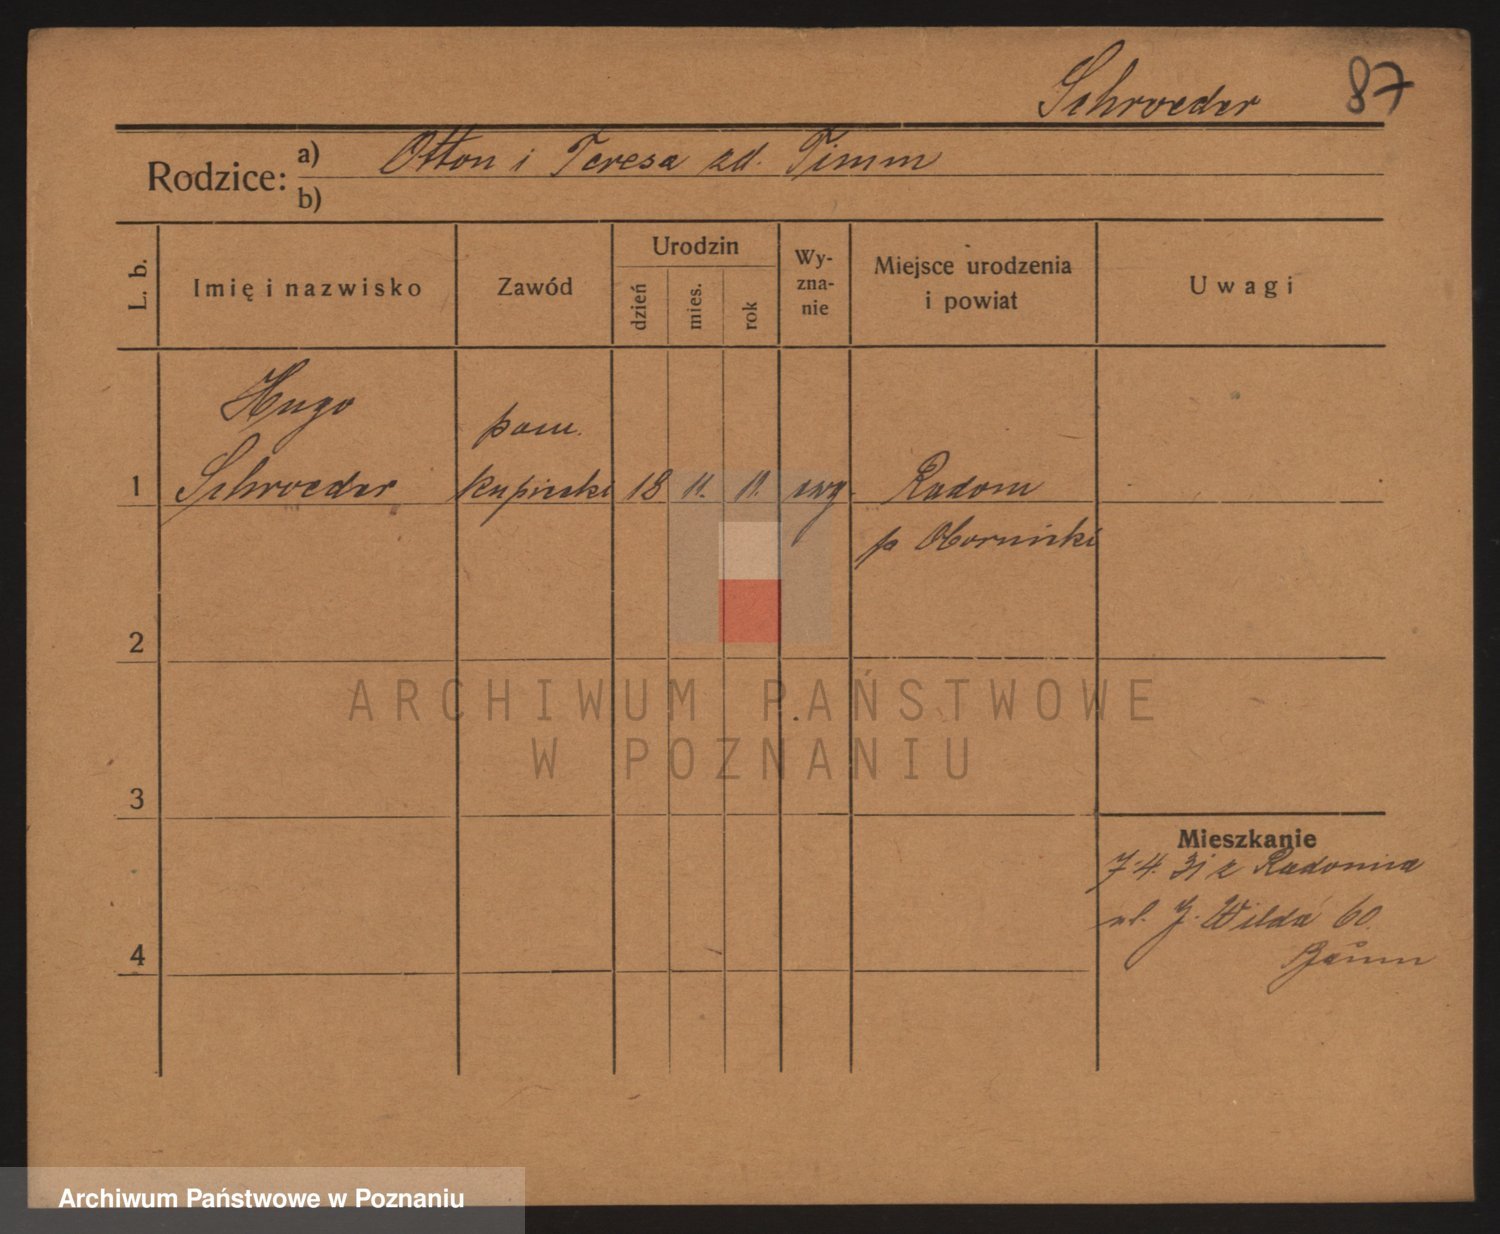 Schroeder 87
Rodzice: a) Otton i Teresa zd. Timm
b)
L. b. Imię i nazwisko Zawód Urodzin dzień mies. rok Wyznanie Miejsce urodzenia i powiat Uwagi
Hugo pom.
1 Schroeder kupiecki 18 11. 11. ewg. Radom
p Oborniki
2
ARCHIWUM PAŃSTWOWE
W POZNANIU
3
Mieszkanie
7.4.31 z Radomia
ul. J. Wilda 60
4
Archiwum Państwowe w Poznaniu